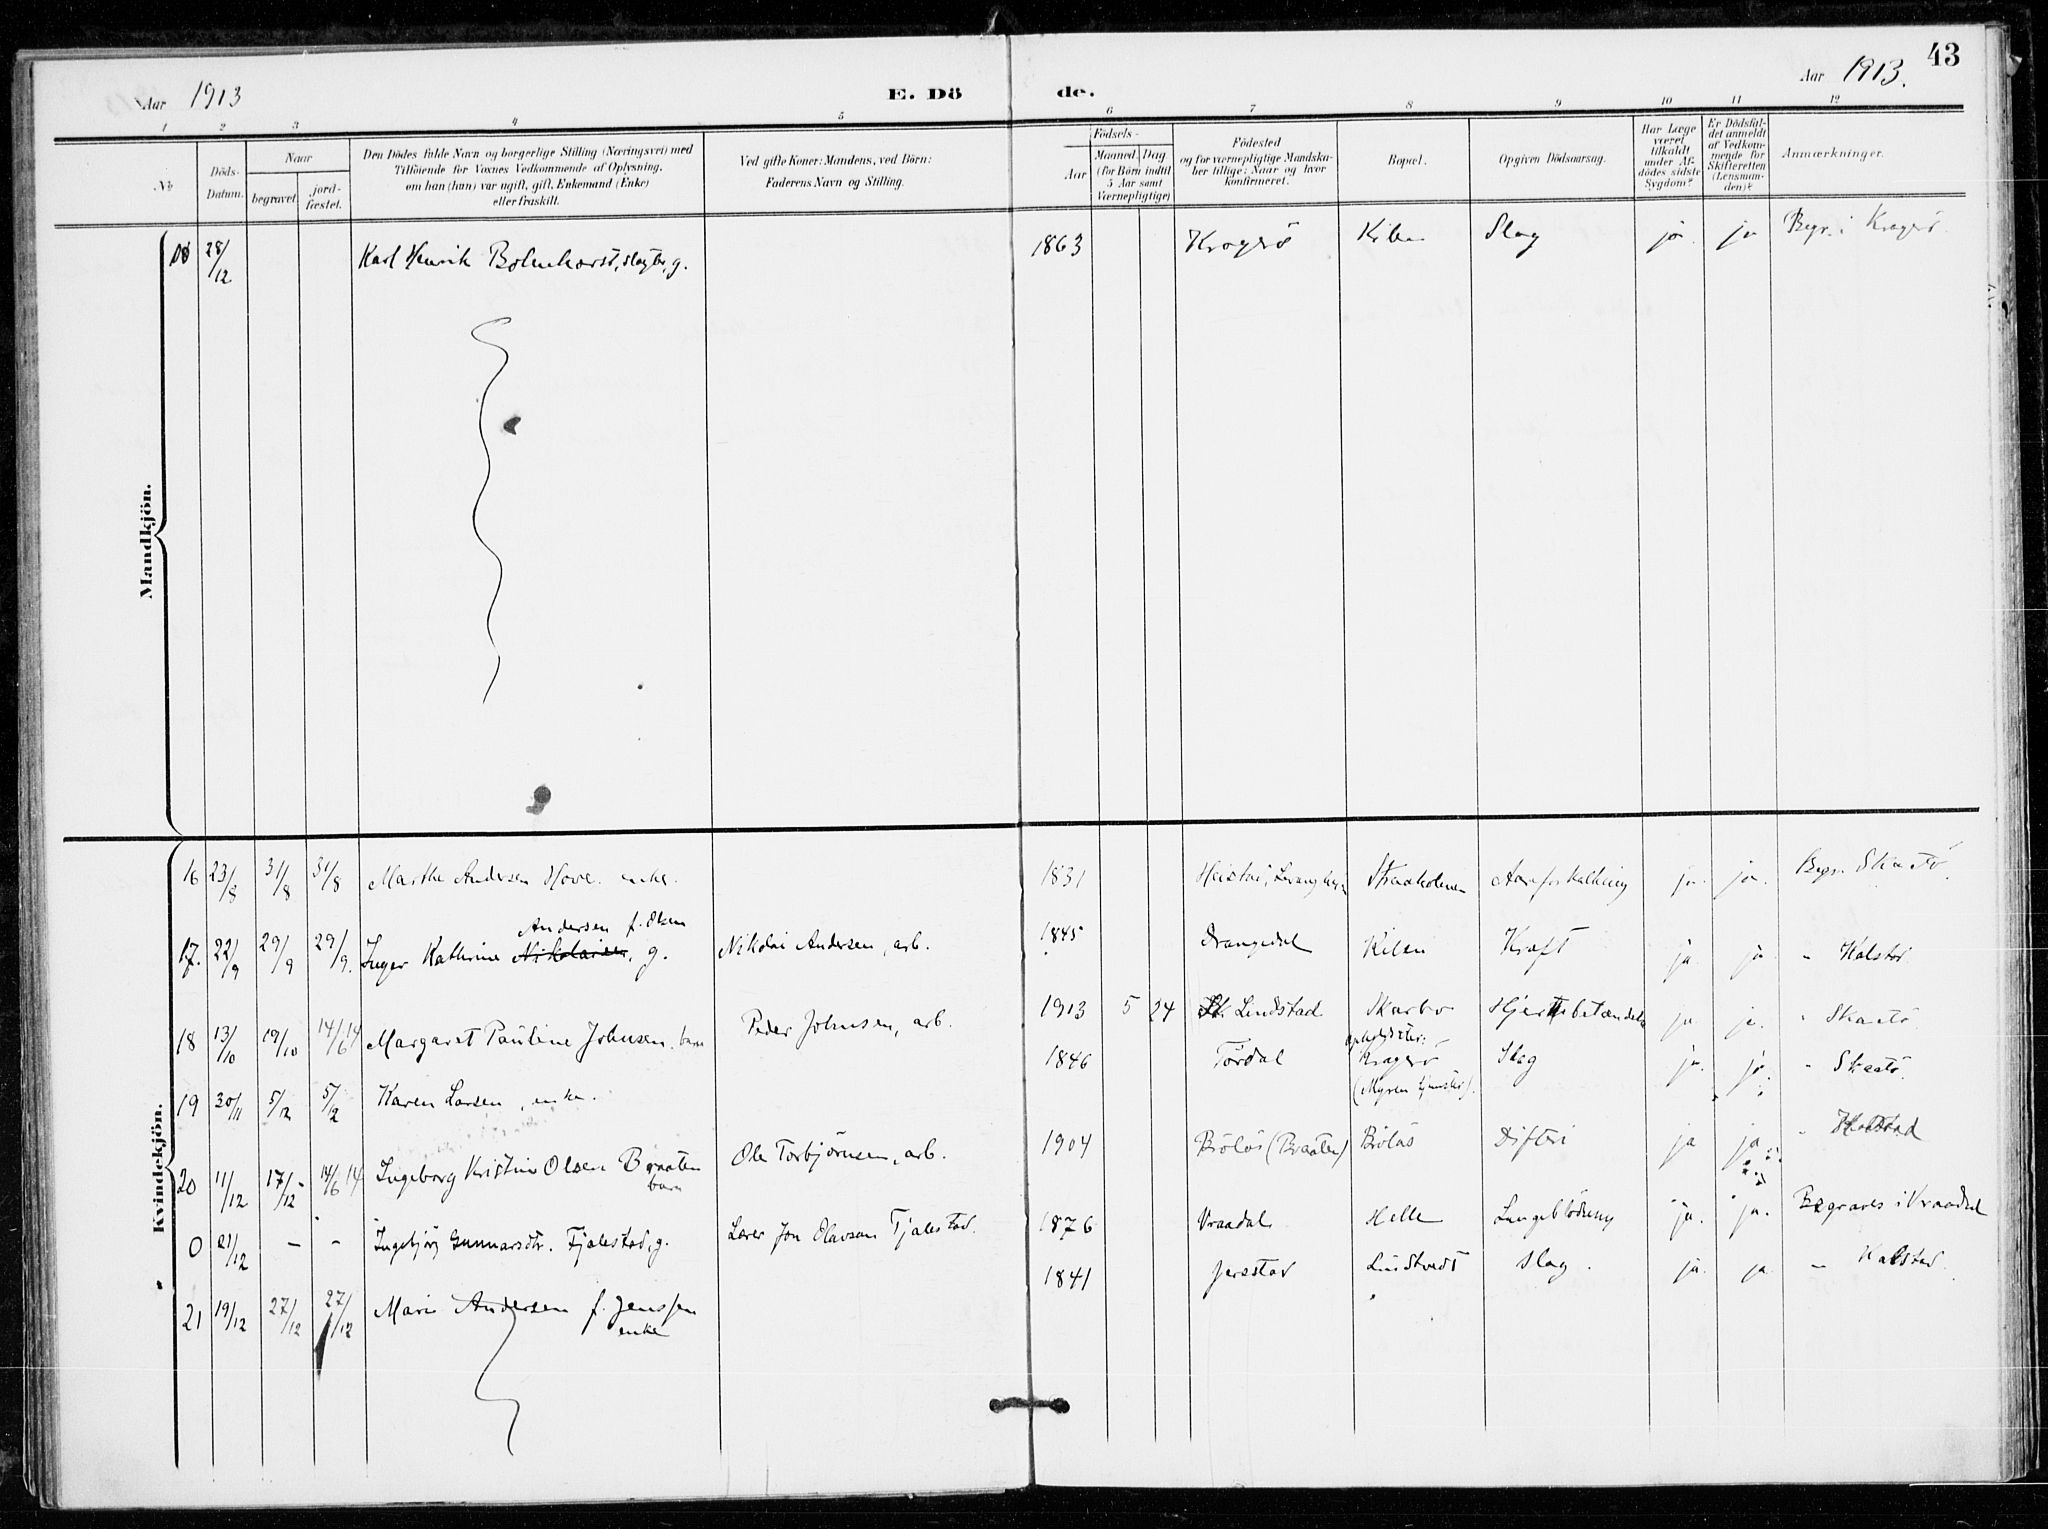 43
Aar 1913
E. Dö de.
Aar 1913.
1 2 3 4 5 6 7 8 9 10 11 12
No
Döds-
Datum.
Naar
begravet.
jord-
fæstet.
Den Dödes fulde Navn og borgerlige Stilling (Næringsvei) med
Tilföiende for Voxnes Vedkommende af Oplysning,
om han (hun) var ugift, gift, Enkemand (Enke)
eller fraskilt.
Ved gifte Koner: Mandens, ved Börn:
Faderens Navn og Stilling.
Födsels-
Aar
Maaned. Dag
(for Börn indtil
5 Aar samt
Værnepligtige)
Födested
og for værnepligtige Mandska-
ber tillige: Naar og hvor
konfirmeret.
Bopæl.
Opgiven Dödsaarsag.
Har Læge
været
tilkaldt
under Af-
dödes sidste
Sygdom?
Er Dödsfal-
det anmeldt
af Vedkom-
mende for
Skifteretten
(Lensman-
den)?
Anmærkninger.
Mandkjön.
28/12 Karl Henrik Bolmhorst, slagter, g. 1863 Kragerö Kilen Slag ja. ja Begr. i Kragerö.
Kvindekjön.
16 23/8 31/8 31/8 Marthe Andersen Hove. enke. 1831 Straaholmen Aareforkalkning ja. ja. Begr. Skaatö.
Andersen f. Olsen
17. 22/9 29/9 29/9. Inger Kathrine Nikolaisen, g. Nikolai Andersen, arb. 1845 Drangedal Kilen Kræft ja. ja. " Kalstad.
18 13/10 19/10 14/6 14 Margaret Pauline Johnsen. barn Peder Johnsen, arb. 1913 5 24 Lindstad Skarbo Hjertebetændelse ja. ja. " Skaatö.
19 30/11 5/12 5/12 Karen Larsen, enke. 1846 Tördal Kragerö Slag ja. ja. " Skaatö.
20 11/12 17/12 14/6 14 Ingeborg Kristine Olsen Braaten
barn
Ole Torbjörnsen, arb. 1904 Rölås (Braaten) Rölås Difteri ja ja " Kalstad
0 21/12 – – Ingebjörg Gunnarsdtr. Fjalestad, g. Lærer Jon Olavsen Fjalestad. 1876 Vraadal Helle Lungeblödning ja. ja. Begraves i Vraadal
21 19/12 27/12 27/12 Marie Andersen f. Jenssen
enke
1841 Jersstad Lindtvedt Slag. ja. ja. " Kalstad.